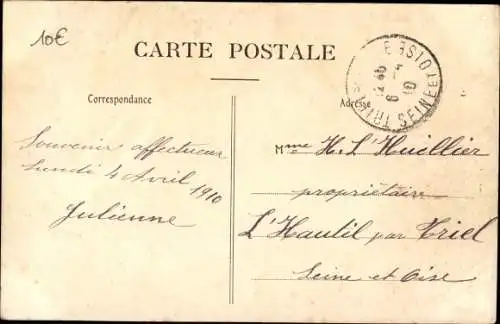 10€
CARTE POSTALE
TRIEL SEINE ET OISE
Correspondance
Adresse
Souvenir affectueux
Lundi 4 Avril 1910
Julienne
Mme H. L'Huillier
propriétaire
L'Hautil par Triel
Seine et Oise